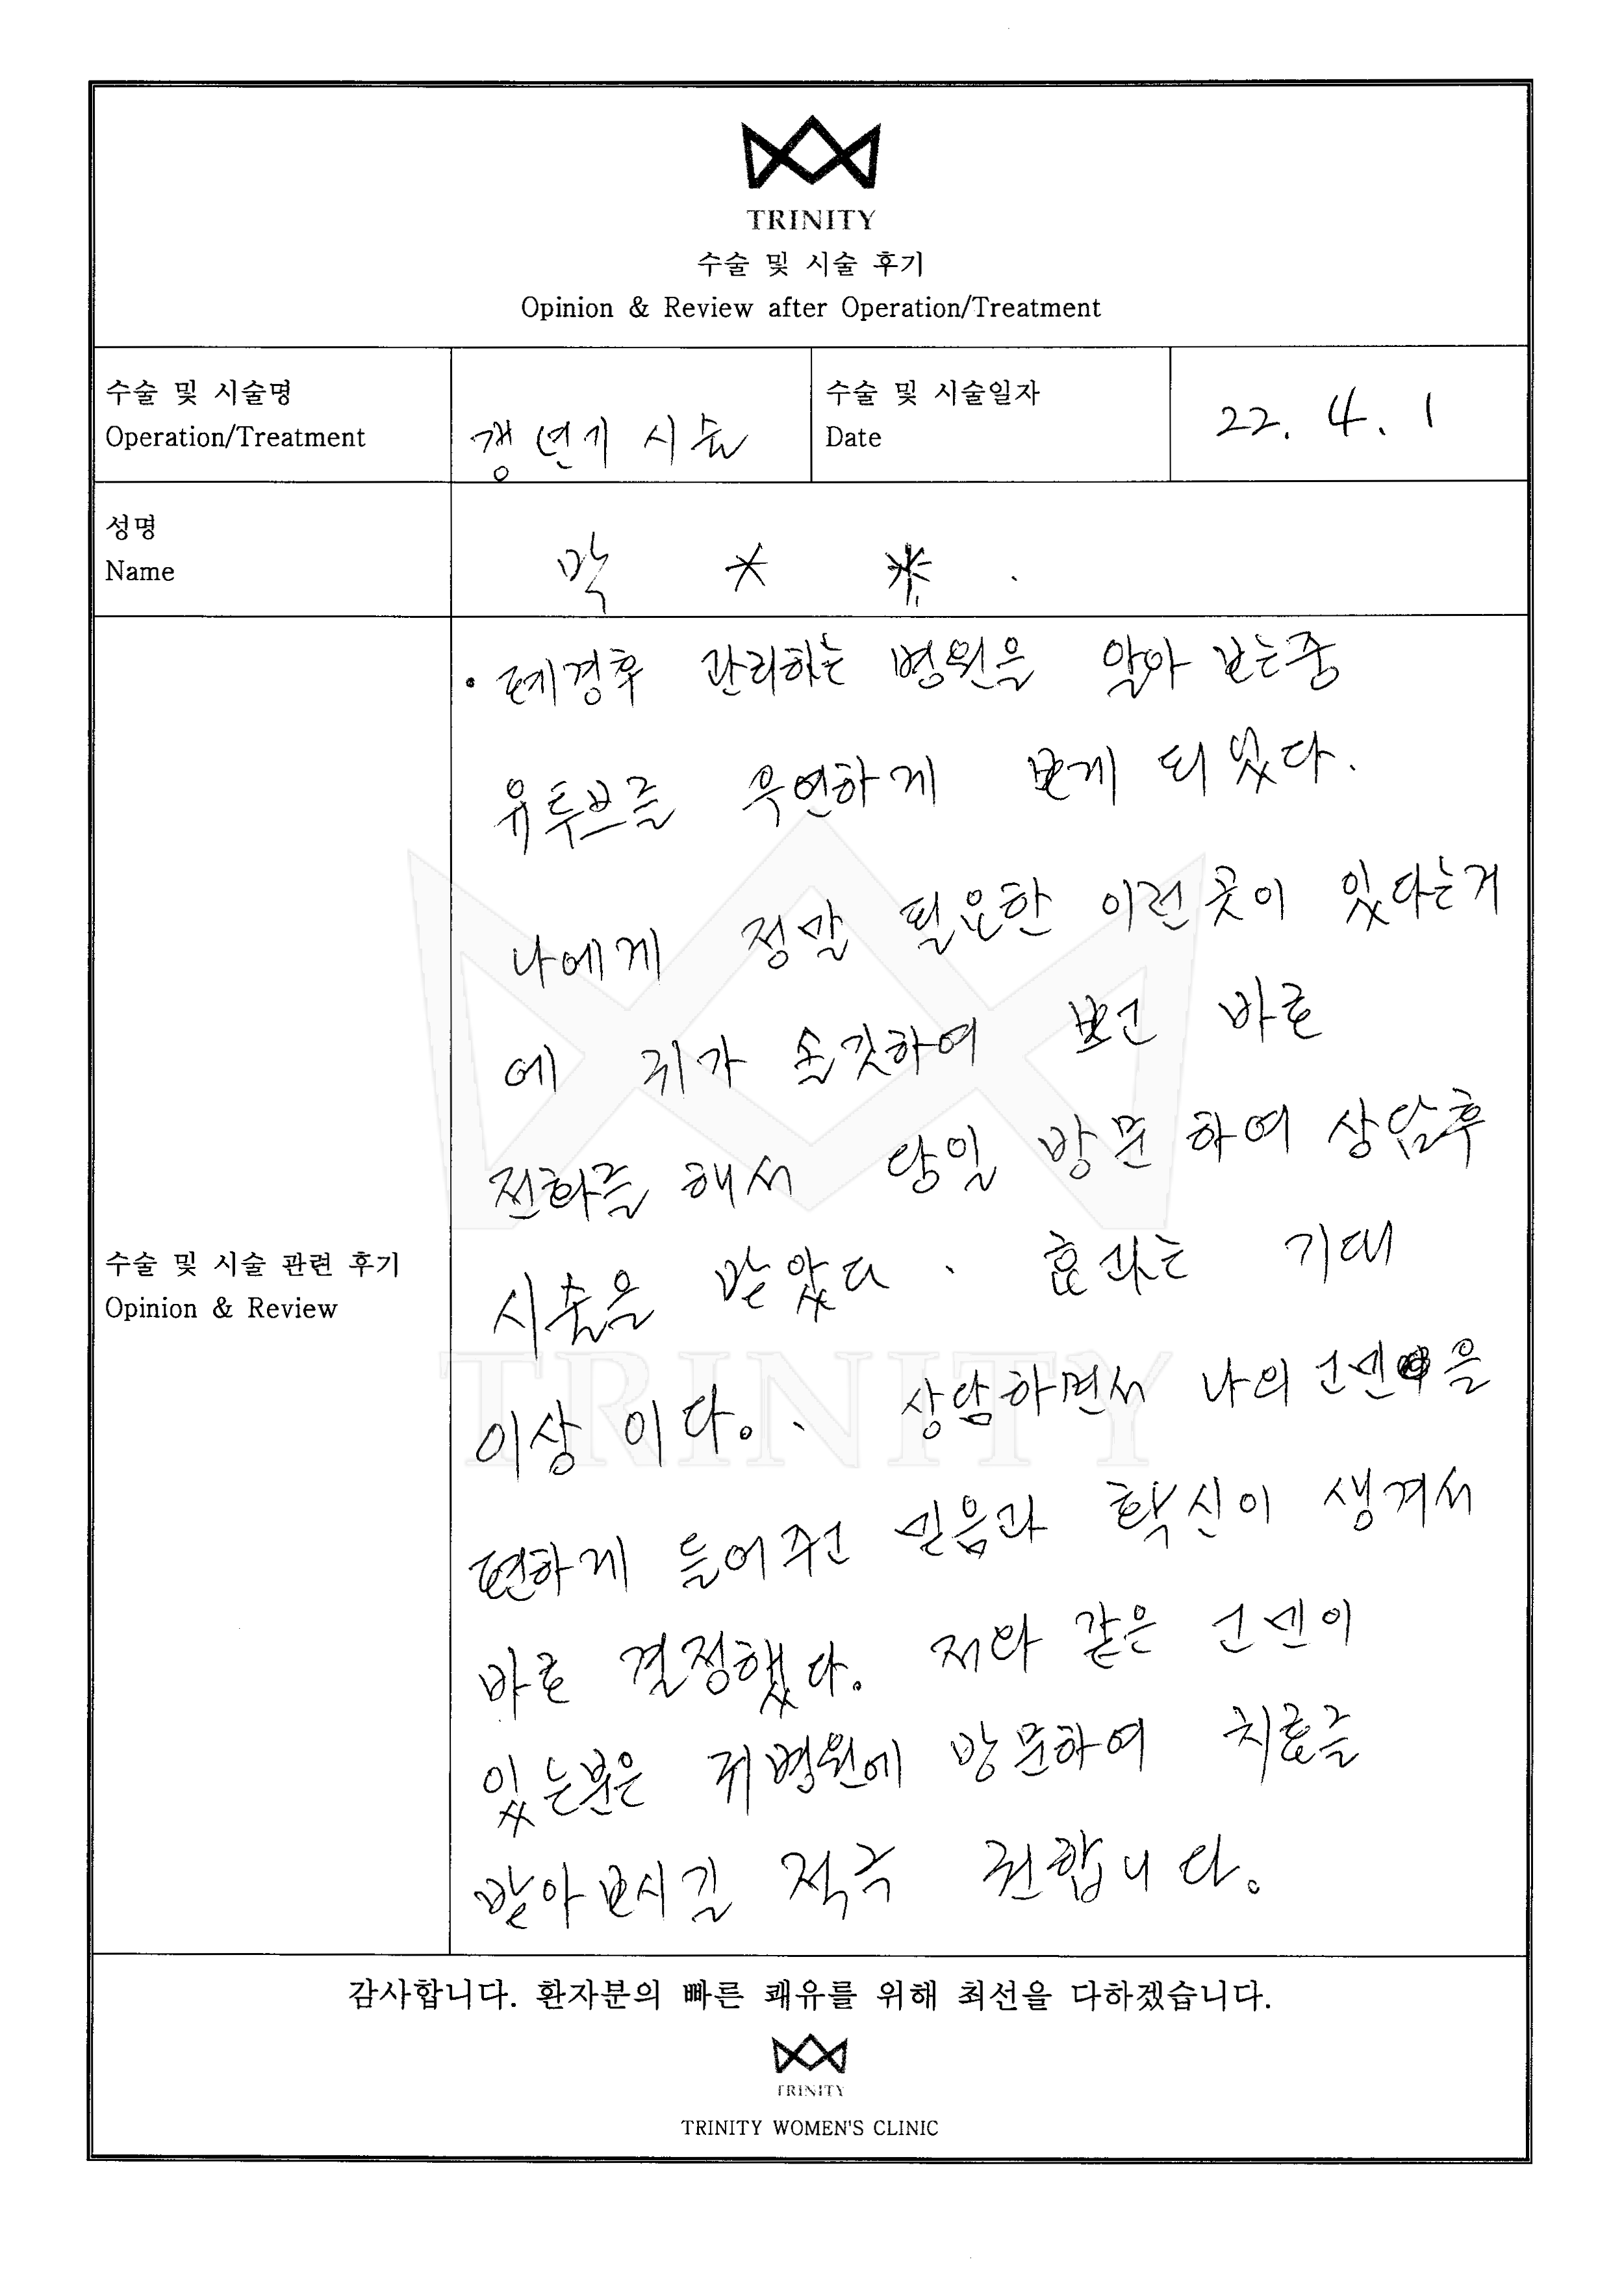 TRINITY
수술 및 시술 후기
Opinion & Review after Operation/Treatment
수술 및 시술명
Operation/Treatment
갱년기 시술
수술 및 시술일자
Date
22. 4. 1
성명
Name
박 * *
수술 및 시술 관련 후기
Opinion & Review
• 폐경후 관리하는 병원을 알아 보는중
유투브를 우연하게 보게 되었다.
나에게 정말 필요한 이런곳이 있다는거
에 귀가 솔깃하여 보고 바로
전화를 해서 당일 방문하여 상담후
시술을 받았다. 효과는 기대
이상 이다. 상담하면서 나의 고민을
편하게 들어주고 믿음과 확신이 생겨서
바로 결정했다. 저와 같은 고민이
있는분은 귀병원에 방문하여 치료를
받아보시길 적극 권합니다.
TRINITY
감사합니다. 환자분의 빠른 쾌유를 위해 최선을 다하겠습니다.
TRINITY
TRINITY WOMEN'S CLINIC